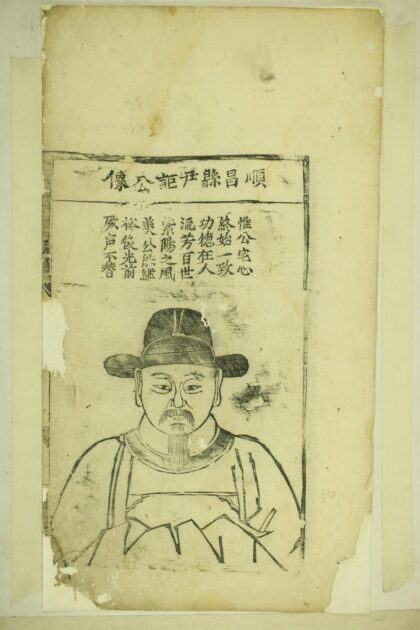 順昌縣尹詎公像
惟公宅心
終始一致
功德在人
流芳百世
紫陽之風
美公能継
裕後光前
厥声不替